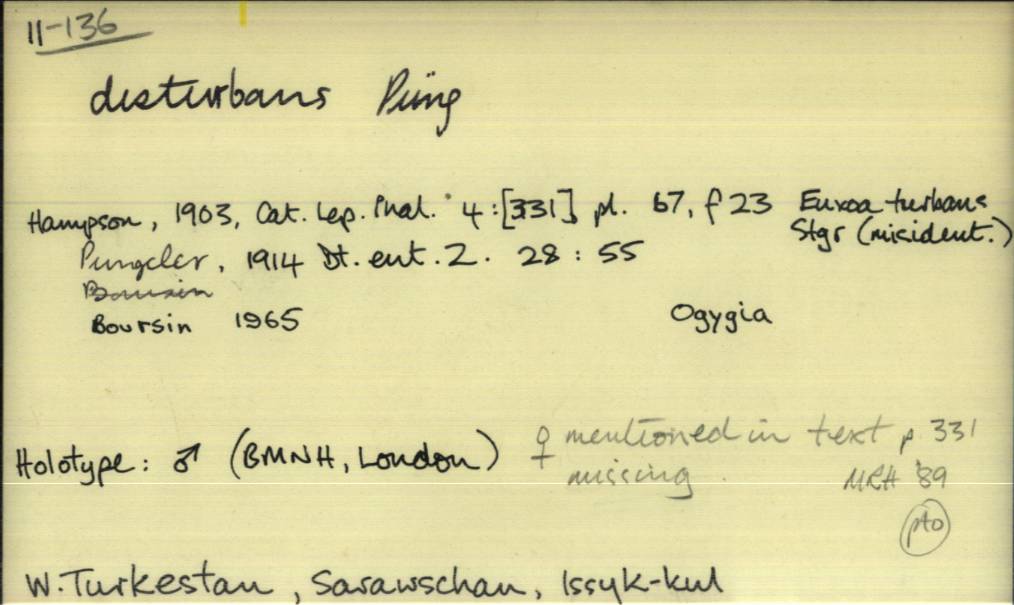 11-136
disturbans Püng
Hampson, 1903, Cat. Lep. Phal. 4:[331] pl. 67, f 23 Euxoa turbans
Stgr (misident.)
Pungeler, 1914 Dt. ent. Z. 28: 55
Boursin
Boursin 1965 Ogygia
Holotype: ♂ (BMNH, London) ♀ mentioned in text p 331
missing. MRH '89
pto
W. Turkestan, Sarawschan, Issyk-kul